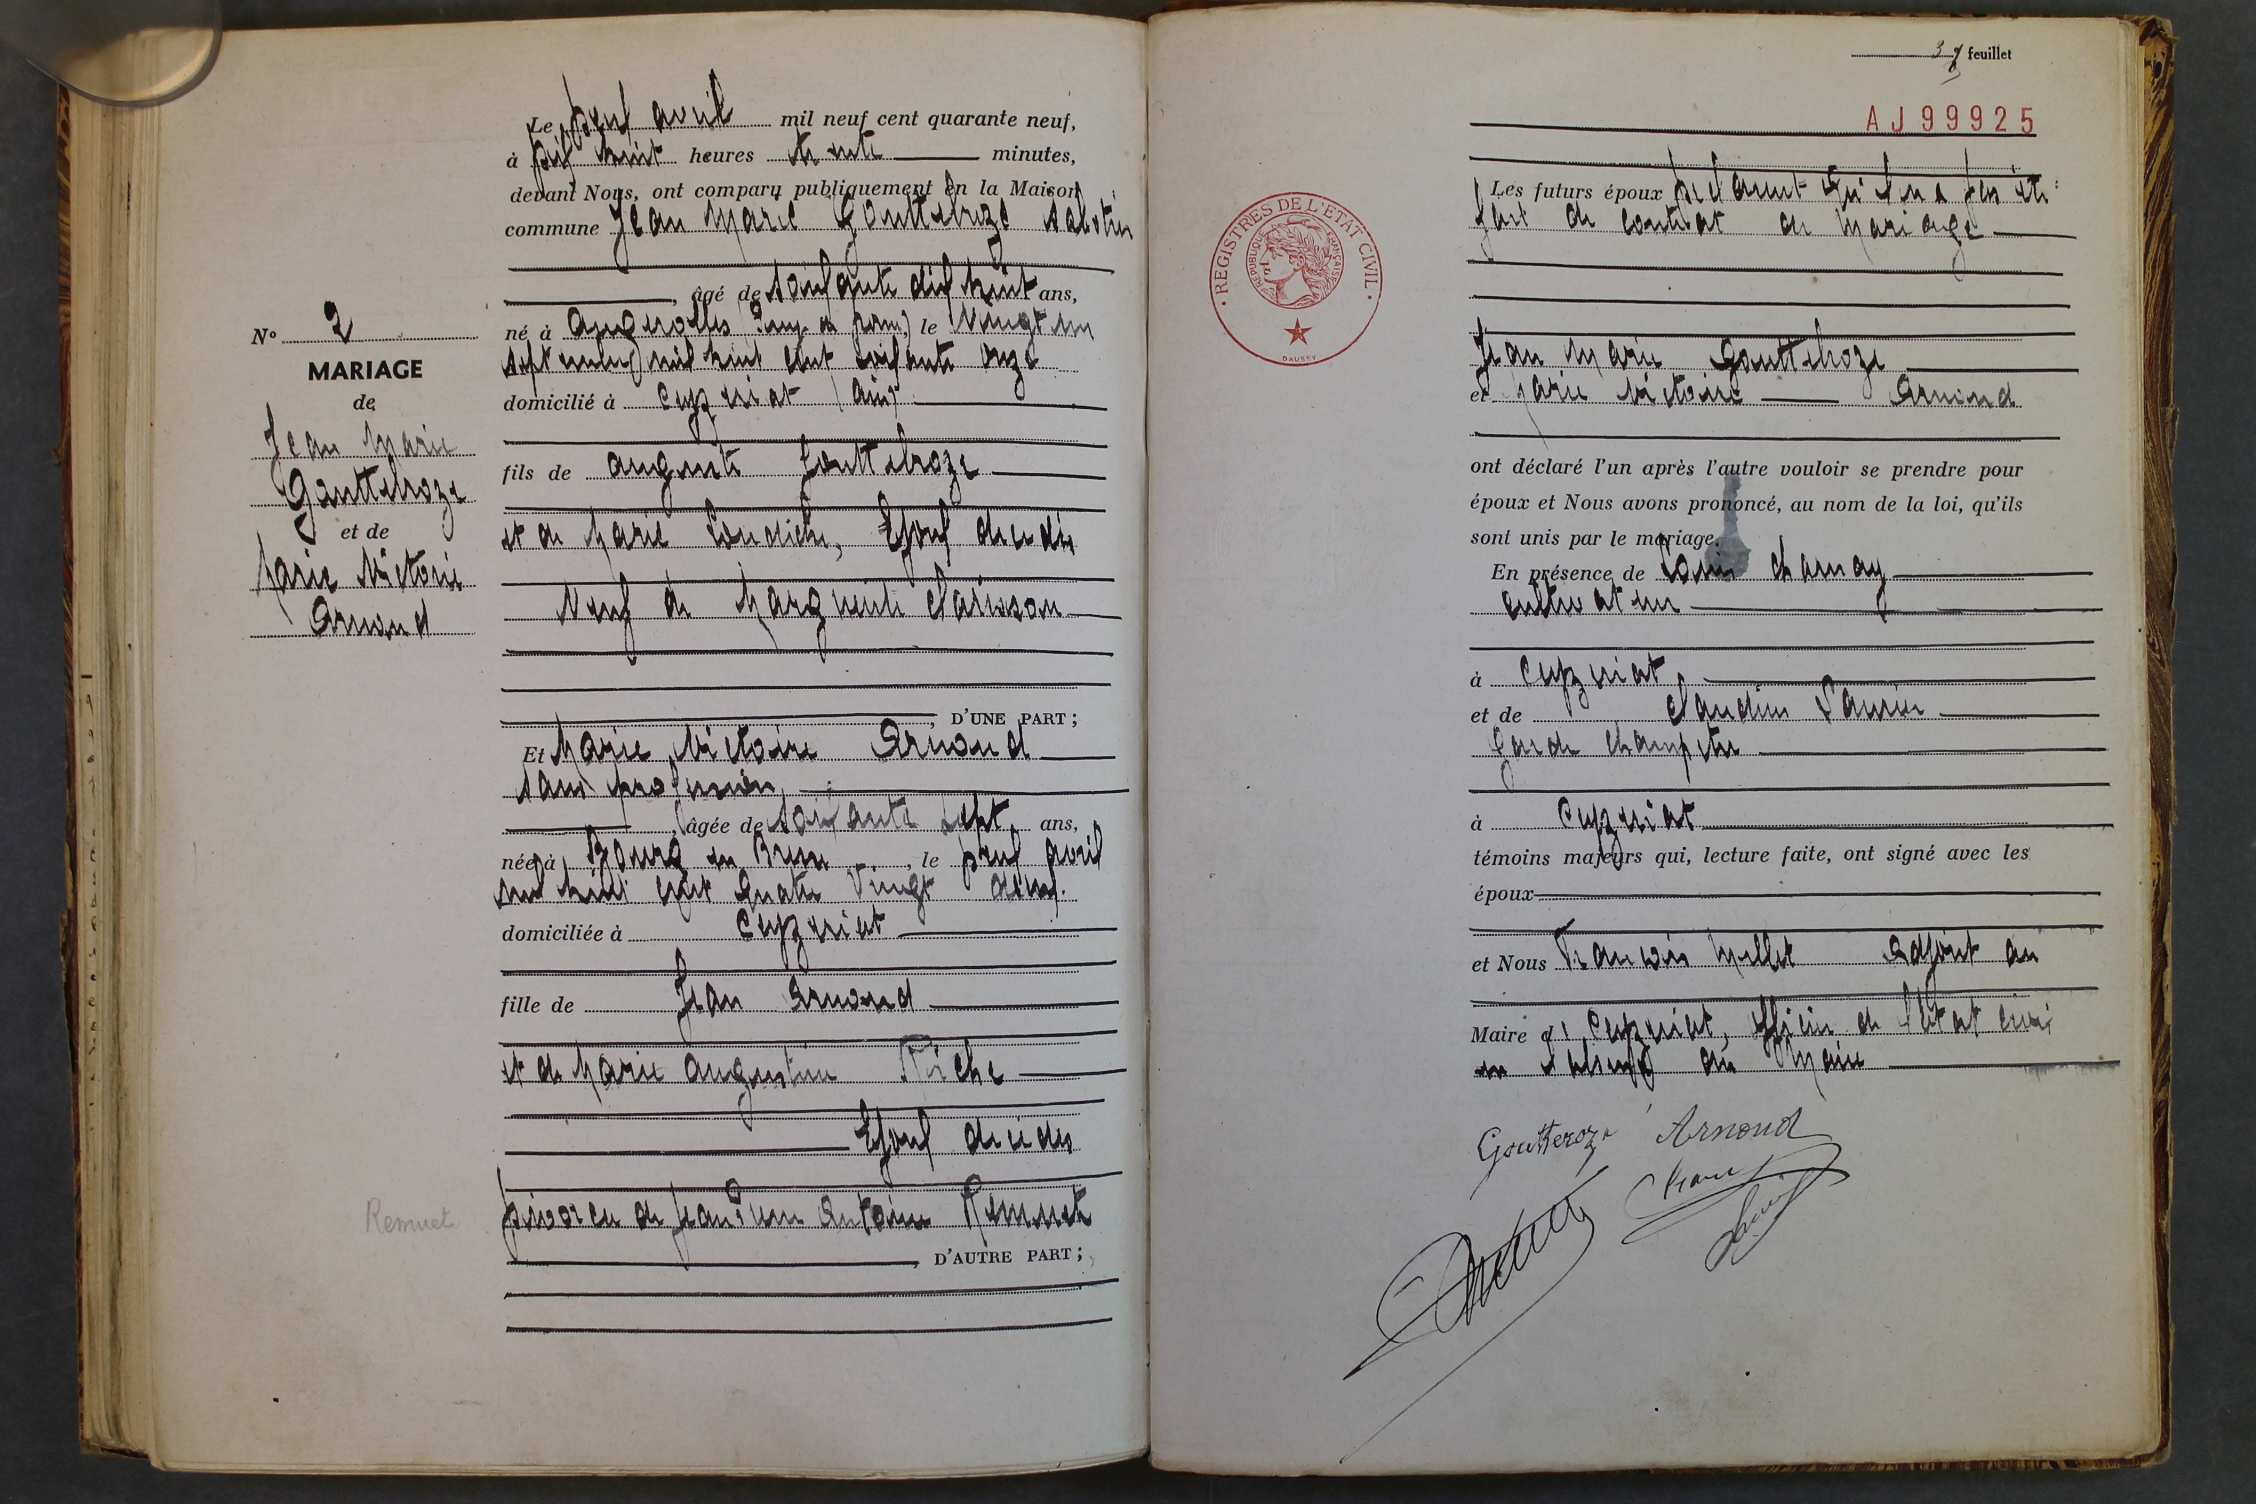 Le deux avril mil neuf cent quarante neuf,
à dix huit heures trente minutes,
devant Nous, ont comparu publiquement en la Maison
commune Jean Marie Goutteroze sabotier
, âgé de soixante dix huit ans,
né à Augerolles (Puy de Dome) le vingt un
septembre mil huit cent soixante onze
domicilié à Ceyzeriat (Ain)
fils de Auguste Goutteroze
et de Marie décédés
Veuf de Marguerite
, D'UNE PART ;
Et Marie Victoire Arnoud
sans profession
, âgée de soixante sept ans,
née à Bourg en Bresse, le deux avril
mil huit cent quatre vingt deux.
domiciliée à Ceyzeriat
fille de Jean Arnoud
et de Marie Augustine Riche
décédés
divorcée de Jean Antoine Remuet
, D'AUTRE PART ;
No 2
MARIAGE
de
Jean Marie
Goutteroze
et de
Marie Victoire
Arnoud
Remuet
37 feuillet
AJ99925
REGISTRES DE L'ETAT CIVIL
REPUBLIQUE FRANÇAISE
DAUSSY
Les futurs époux déclarent qu'il n'a pas été
fait de contrat de mariage
Jean Marie Goutteroze
et Marie Victoire Arnoud
ont déclaré l'un après l'autre vouloir se prendre pour
époux et Nous avons prononcé, au nom de la loi, qu'ils
sont unis par le mariage.
En présence de Louis Charnay
cultivateur
à Ceyzeriat
et de Claudius
Garde champêtre
à Ceyzeriat
témoins majeurs qui, lecture faite, ont signé avec les
époux
et Nous François Millet adjoint au
Maire de Ceyzeriat, officier de l'état civil
en l'absence du Maire
Goutteroze Arnoud